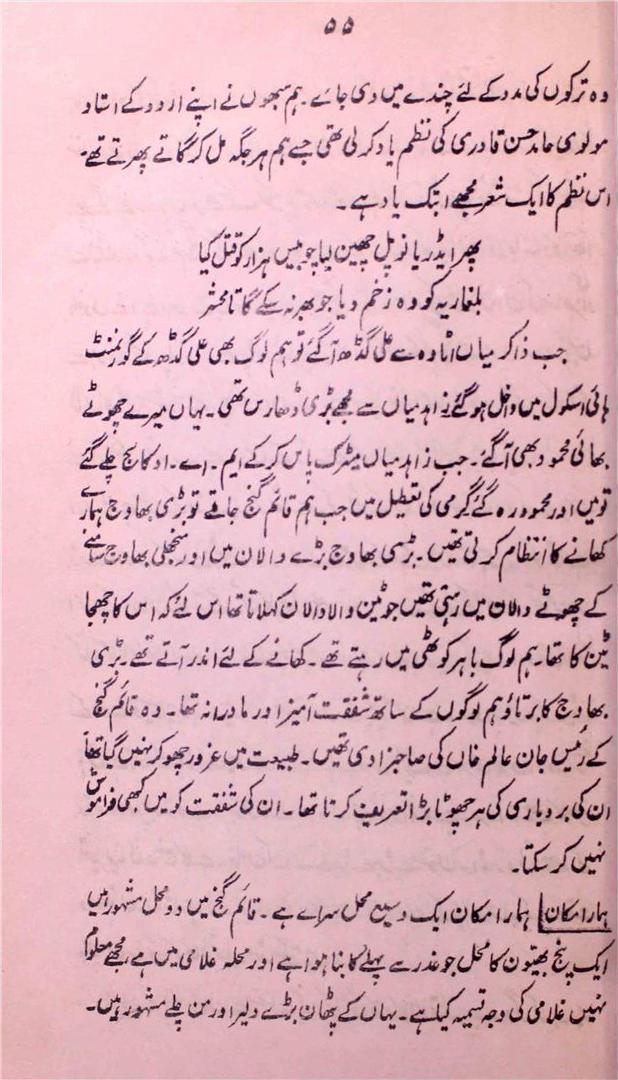 ۵۵
وہ ترکوں کی مدد کے لئے چندے میں دی جائے۔ ہم سبھوں نے اپنے اردو کے استاد
مولوی حامد حسن قادری کی نظم یاد کر لی تھی جسے ہم ہر جگہ مل کر گاتے پھرتے تھے۔
اس نظم کا ایک شعر مجھے ابتک یاد ہے۔
پھر ایڈریانوپل چھین لیا چوبیس ہزار کو قتل کیا
بلغاریہ کو وہ زخم دیا جو بھر نہ سکے گا تا محشر
جب ذاکر میاں اٹاوہ سے علی گڈھ آگئے تو ہم لوگ بھی علی گڈھ کے گورنمنٹ
ہائی اسکول میں داخل ہو گئے زاہد میاں سے مجھے بڑی ڈھارس تھی۔ یہاں میرے چھوٹے
بھائی محمود بھی آگئے۔ جب زاہد میاں میٹرک پاس کر کے ایم۔ اے۔ او کالج چلے گئے
تو میں اور محمود رہ گئے گرمی کی تعطیل میں جب ہم قائم گنج جاتے تو بڑی بھاوج ہمارے
کھانے کا انتظام کرتی تھیں۔ بڑی بھاوج بڑے دالان میں اور منجھلی بھاوج سامنے
کے چھوٹے دالان میں رہتی تھیں جو ٹین والا دالان کہلاتا تھا اس لئے کہ اس کا چھجا
ٹین کا تھا۔ ہم لوگ باہر کوٹھی میں رہتے تھے۔ کھانے کے لئے اندر آتے تھے۔ بڑی
بھاوج کا برتاؤ ہم لوگوں کے ساتھ شفقت آمیز اور مادرانہ تھا۔ وہ قائم گنج
کے رئیس جان عالم خاں کی صاحبزادی تھیں۔ طبیعت میں غرور چھو کر نہیں گیا تھا
ان کی بردباری کی ہر چھوٹا بڑا تعریف کرتا تھا۔ ان کی شفقت کو میں کبھی فراموش
نہیں کر سکتا۔
ہمارا مکان ہمارا مکان ایک وسیع محل سرائے ہے۔ قائم گنج میں دو محل مشہور ہیں
ایک پنج بھیتوں کا محل جو غدر سے پہلے کا بنا ہوا ہے اور محلہ غلامی میں ہے، مجھے معلوم
نہیں غلامی کی وجہ تسمیہ کیا ہے۔ یہاں کے پٹھان بڑے دلیر اور من چلے مشہور ہیں۔